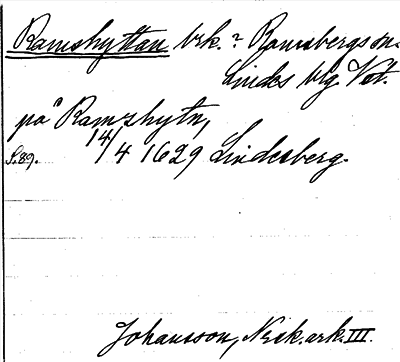 Ramshyttan brk.? Ramsbergs sn.
Lindes blg Vstm.
på Ramshytn,
s.89. 14/4 1629 Lindesberg.
Johansson, Nesk.ark. III.